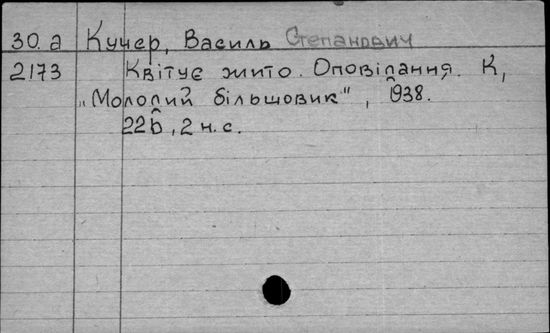 30. а Кучер, Василь Степанович
2173 Квітує жито. Оповідання. К,
„Молодий більшовик", 1938.
226, 2 н. с.